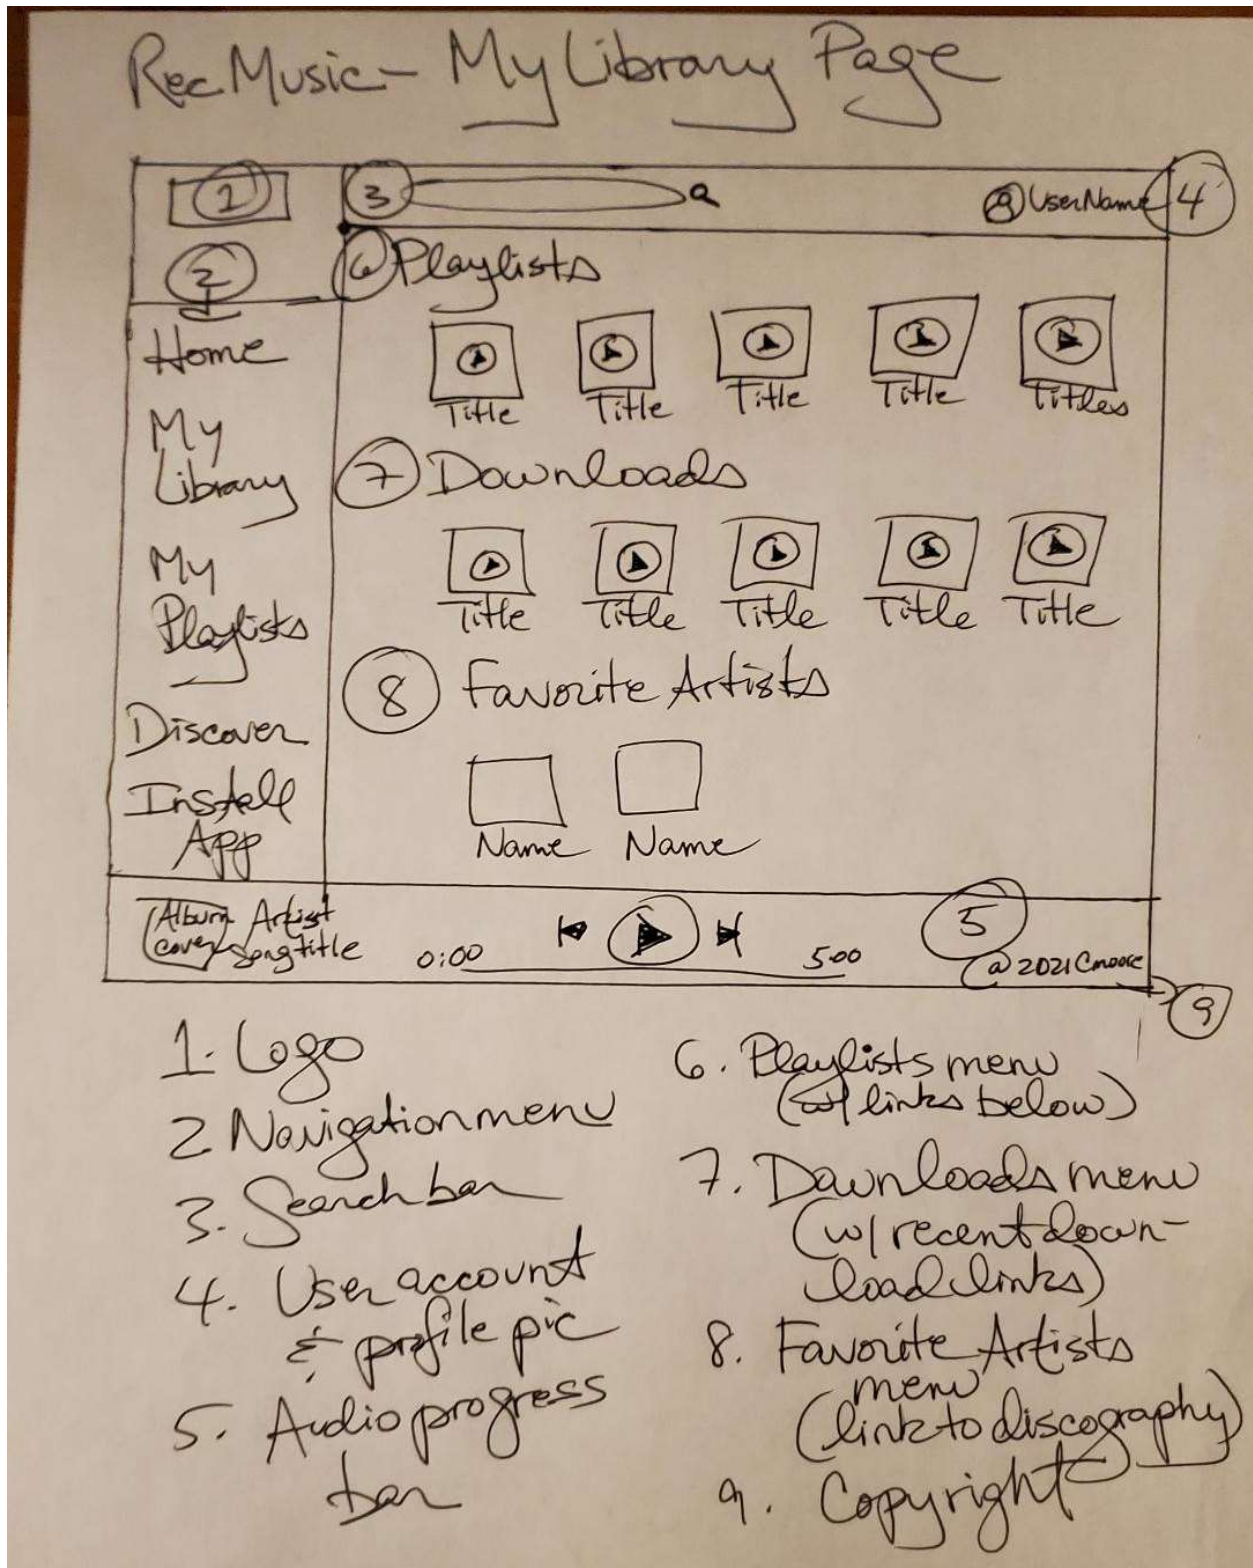 RecMusic- My Library Page
1
3
UserName 4
2
6 Playlists
Home
My
Library
My
Playlists
Discover
Install
App
Title Title Title Title Titles
7 Downloads
Title Title Title Title Title
8 Favorite Artists
Name Name
Album Artist
cover Songtitle
0:00
5:00
5
@ 2021 Cmoore
9
1. Logo
2 Navigation menu
3. Search bar
4. User account
& profile pic
5. Audio progress
bar
6. Playlists menu
(w/ links below)
7. Downloads menu
(w/ recent down-
load links)
8. Favorite Artists
menu
(link to discography)
9. Copyright